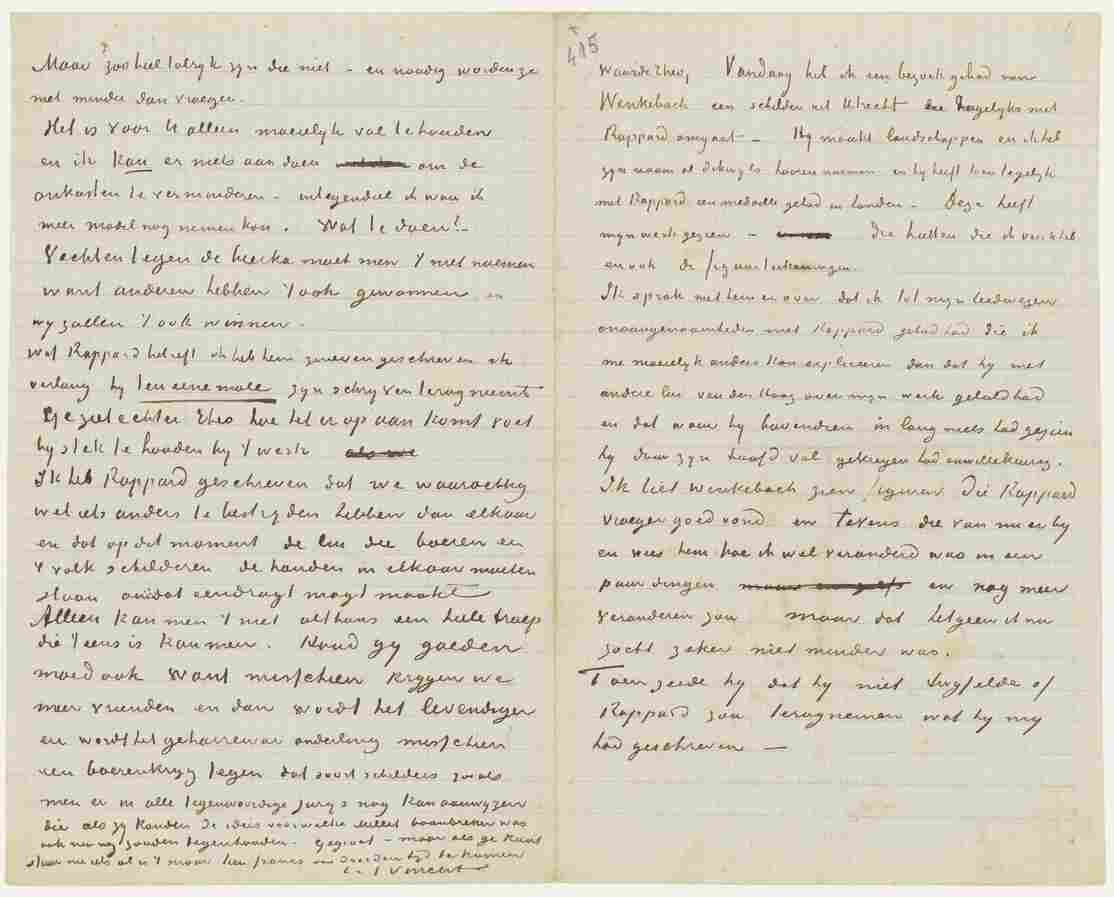 Maar zoo heel talryk zyn die niet – en noodig worden ze
niet minder dan vroeger.
Het is voor U alleen moeielyk vol te houden
en ik kan er niets aan doen om de
onkosten te verminderen – integendeel ik wou ik
meer model nog nemen kon. Wat te doen! –
Vechten tegen de bierka moet men 't niet noemen
want anderen hebben 't ook gewonnen en
wy zullen 't ook winnen.
Wat Rappard betreft ik heb hem geschreven ik
verlang hy ten eene male zyn schryven terugneemt
Ge ziet echter Theo hoe het er op aan komt voet
by stek te houden by 't werk als we
Ik heb Rappard geschreven dat we waarachtig
wel iets anders te bestryden hebben dan elkaar
en dat op dit moment de lui die boeren en
't volk schilderen de handen in elkaar moeten
slaan omdat eendragt magt maakt
Alleen kan men 't niet althans een heele troep
die 't eens is kan meer. Houd gy goeden
moed ook want misschien krygen we
meer vrienden en dan wordt het levendiger
en wordt het geharrewar onderling misschien
een boerenkryg tegen dat soort schilders zooals
men er in alle tegenwoordige jury's nog kan aanwyzen
die als zy konden de idees voor welke Millet baanbreker was
ook nu nog zouden tegenhouden. Gegroet – maar als ge kunt
stuur me iets al is 't maar tien francs om door den tyd te komen
b. à t Vincent
415
1
Waarde Theo, Vandaag heb ik een bezoek gehad van
Wenkebach een schilder uit Utrecht die dagelyks met
Rappard omgaat – Hy maakt landschappen en ik heb
zyn naam al dikwyls hooren noemen en hy heeft toen tegelyk
met Rappard een medaille gehad in Londen – Deze heeft
myn werk gezien – Die hutten die ik voor U heb
en ook de figuurteekeningen.
Ik sprak met hem er over dat ik tot myn leedwezen
onaangenaamheden met Rappard gehad had die ik
me moeielyk anders kon expliceeren dan dat hy met
andere lui van den Haag over myn werk gekald had
en dat waar hy bovendien in lang niets had gezien
hy daar zyn hoofd vol gekregen had onwillekeurig.
Ik liet Wenkebach zien figuren die Rappard
vroeger goed vond en tevens die van nu er by
en wees hem hoe ik wel veranderd was in een
paar dingen en nog meer
veranderen zou maar dat hetgeen ik nu
zocht zeker niet minder was.
Toen zeide hy dat hy niet twyfelde of
Rappard zou terugnemen wat hy my
had geschreven –